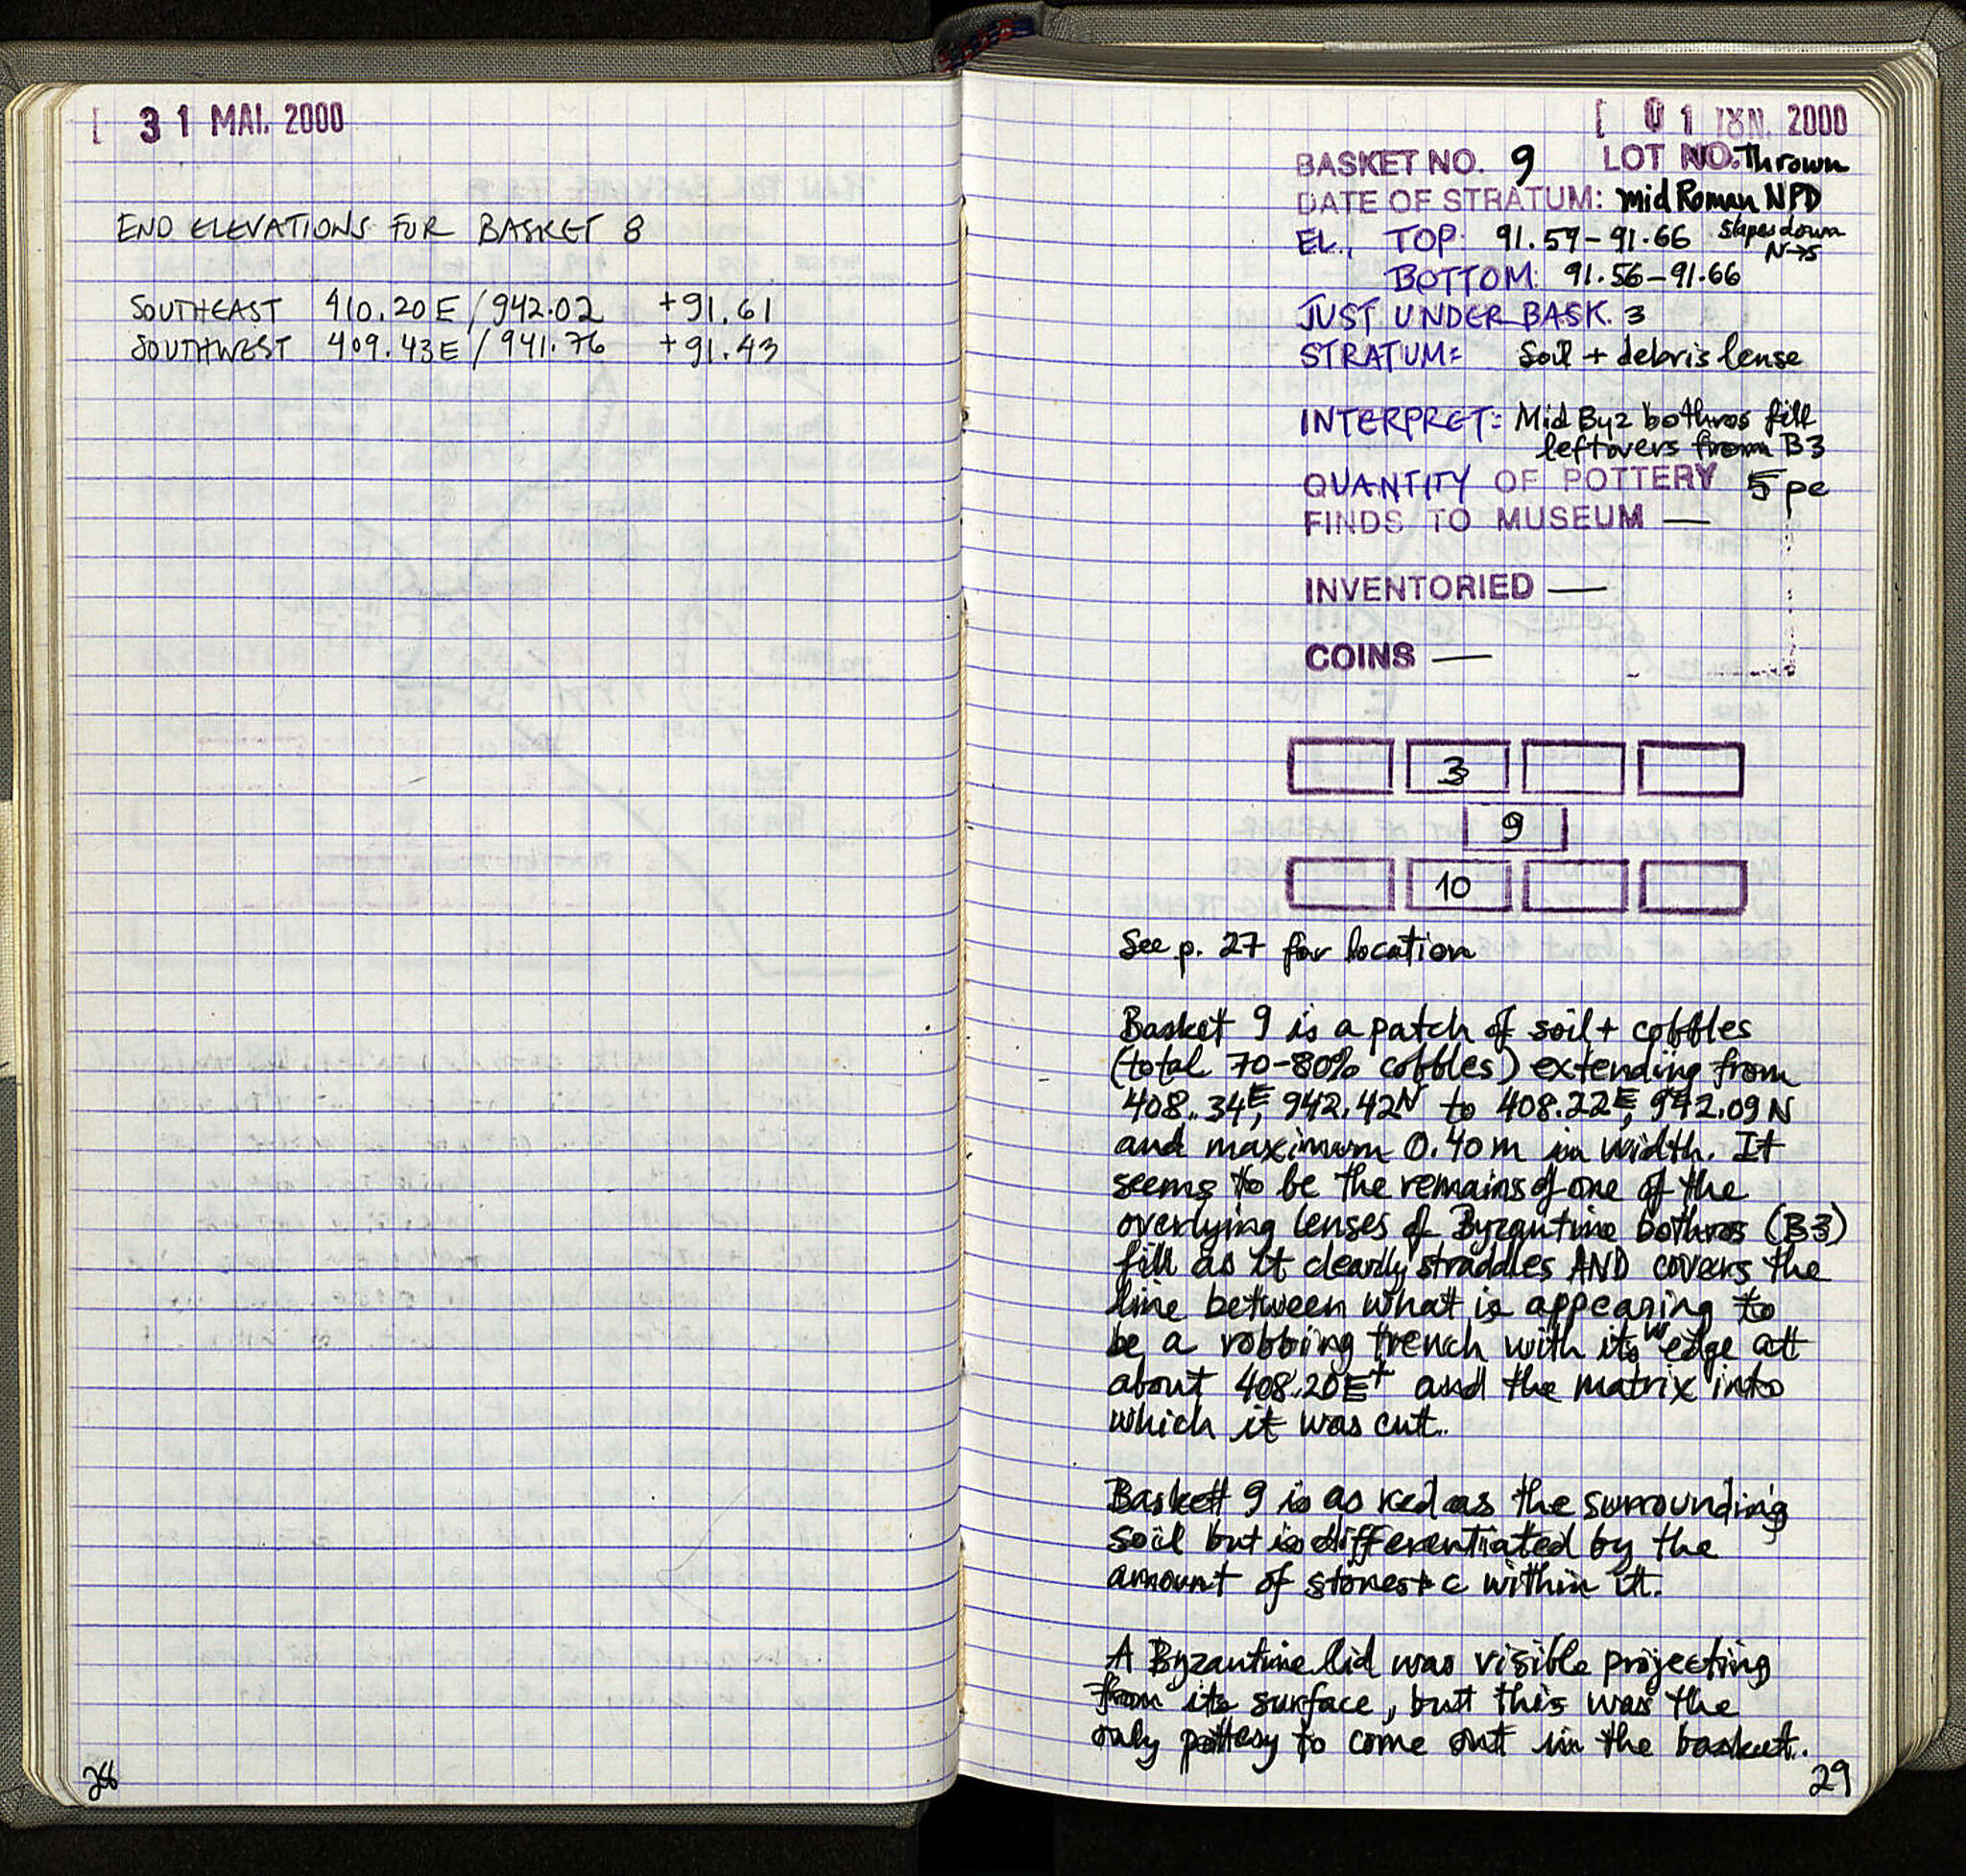 [ 31 MAI. 2000
END ELEVATIONS FOR BASKET 8
SOUTHEAST 410.20E / 942.02 +91.61
SOUTHWEST 409.43E / 941.76 +91.43
28
[ 01 ΙΟΥΝ. 2000
BASKET NO. 9 LOT NO. Thrown
DATE OF STRATUM: mid Roman NPD
EL., TOP: 91.59-91.66 slopes down
N→S
BOTTOM: 91.56-91.66
JUST UNDER BASK. 3
STRATUM: Soil + debris lense
INTERPRET: Mid Byz bothros fill
leftovers from B3
QUANTITY OF POTTERY 5 pc
FINDS TO MUSEUM —
INVENTORIED —
COINS —
3
9
10
See p. 27 for location
Basket 9 is a patch of soil + cobbles
(total 70-80% cobbles) extending from
408.34E, 942.42N to 408.22E, 942.09N
and maximum 0.40m in width. It
seems to be the remains of one of the
overlying lenses of Byzantine bothros (B3)
fill as it clearly straddles AND covers the
line between what is appearing to
be a robbing trench with its W edge at
about 408.20E+ and the matrix into
which it was cut.
Basket 9 is as red as the surrounding
soil but is differentiated by the
amount of stones + c within it.
A Byzantine lid was visible projecting
from its surface, but this was the
only pottery to come out in the basket.
29